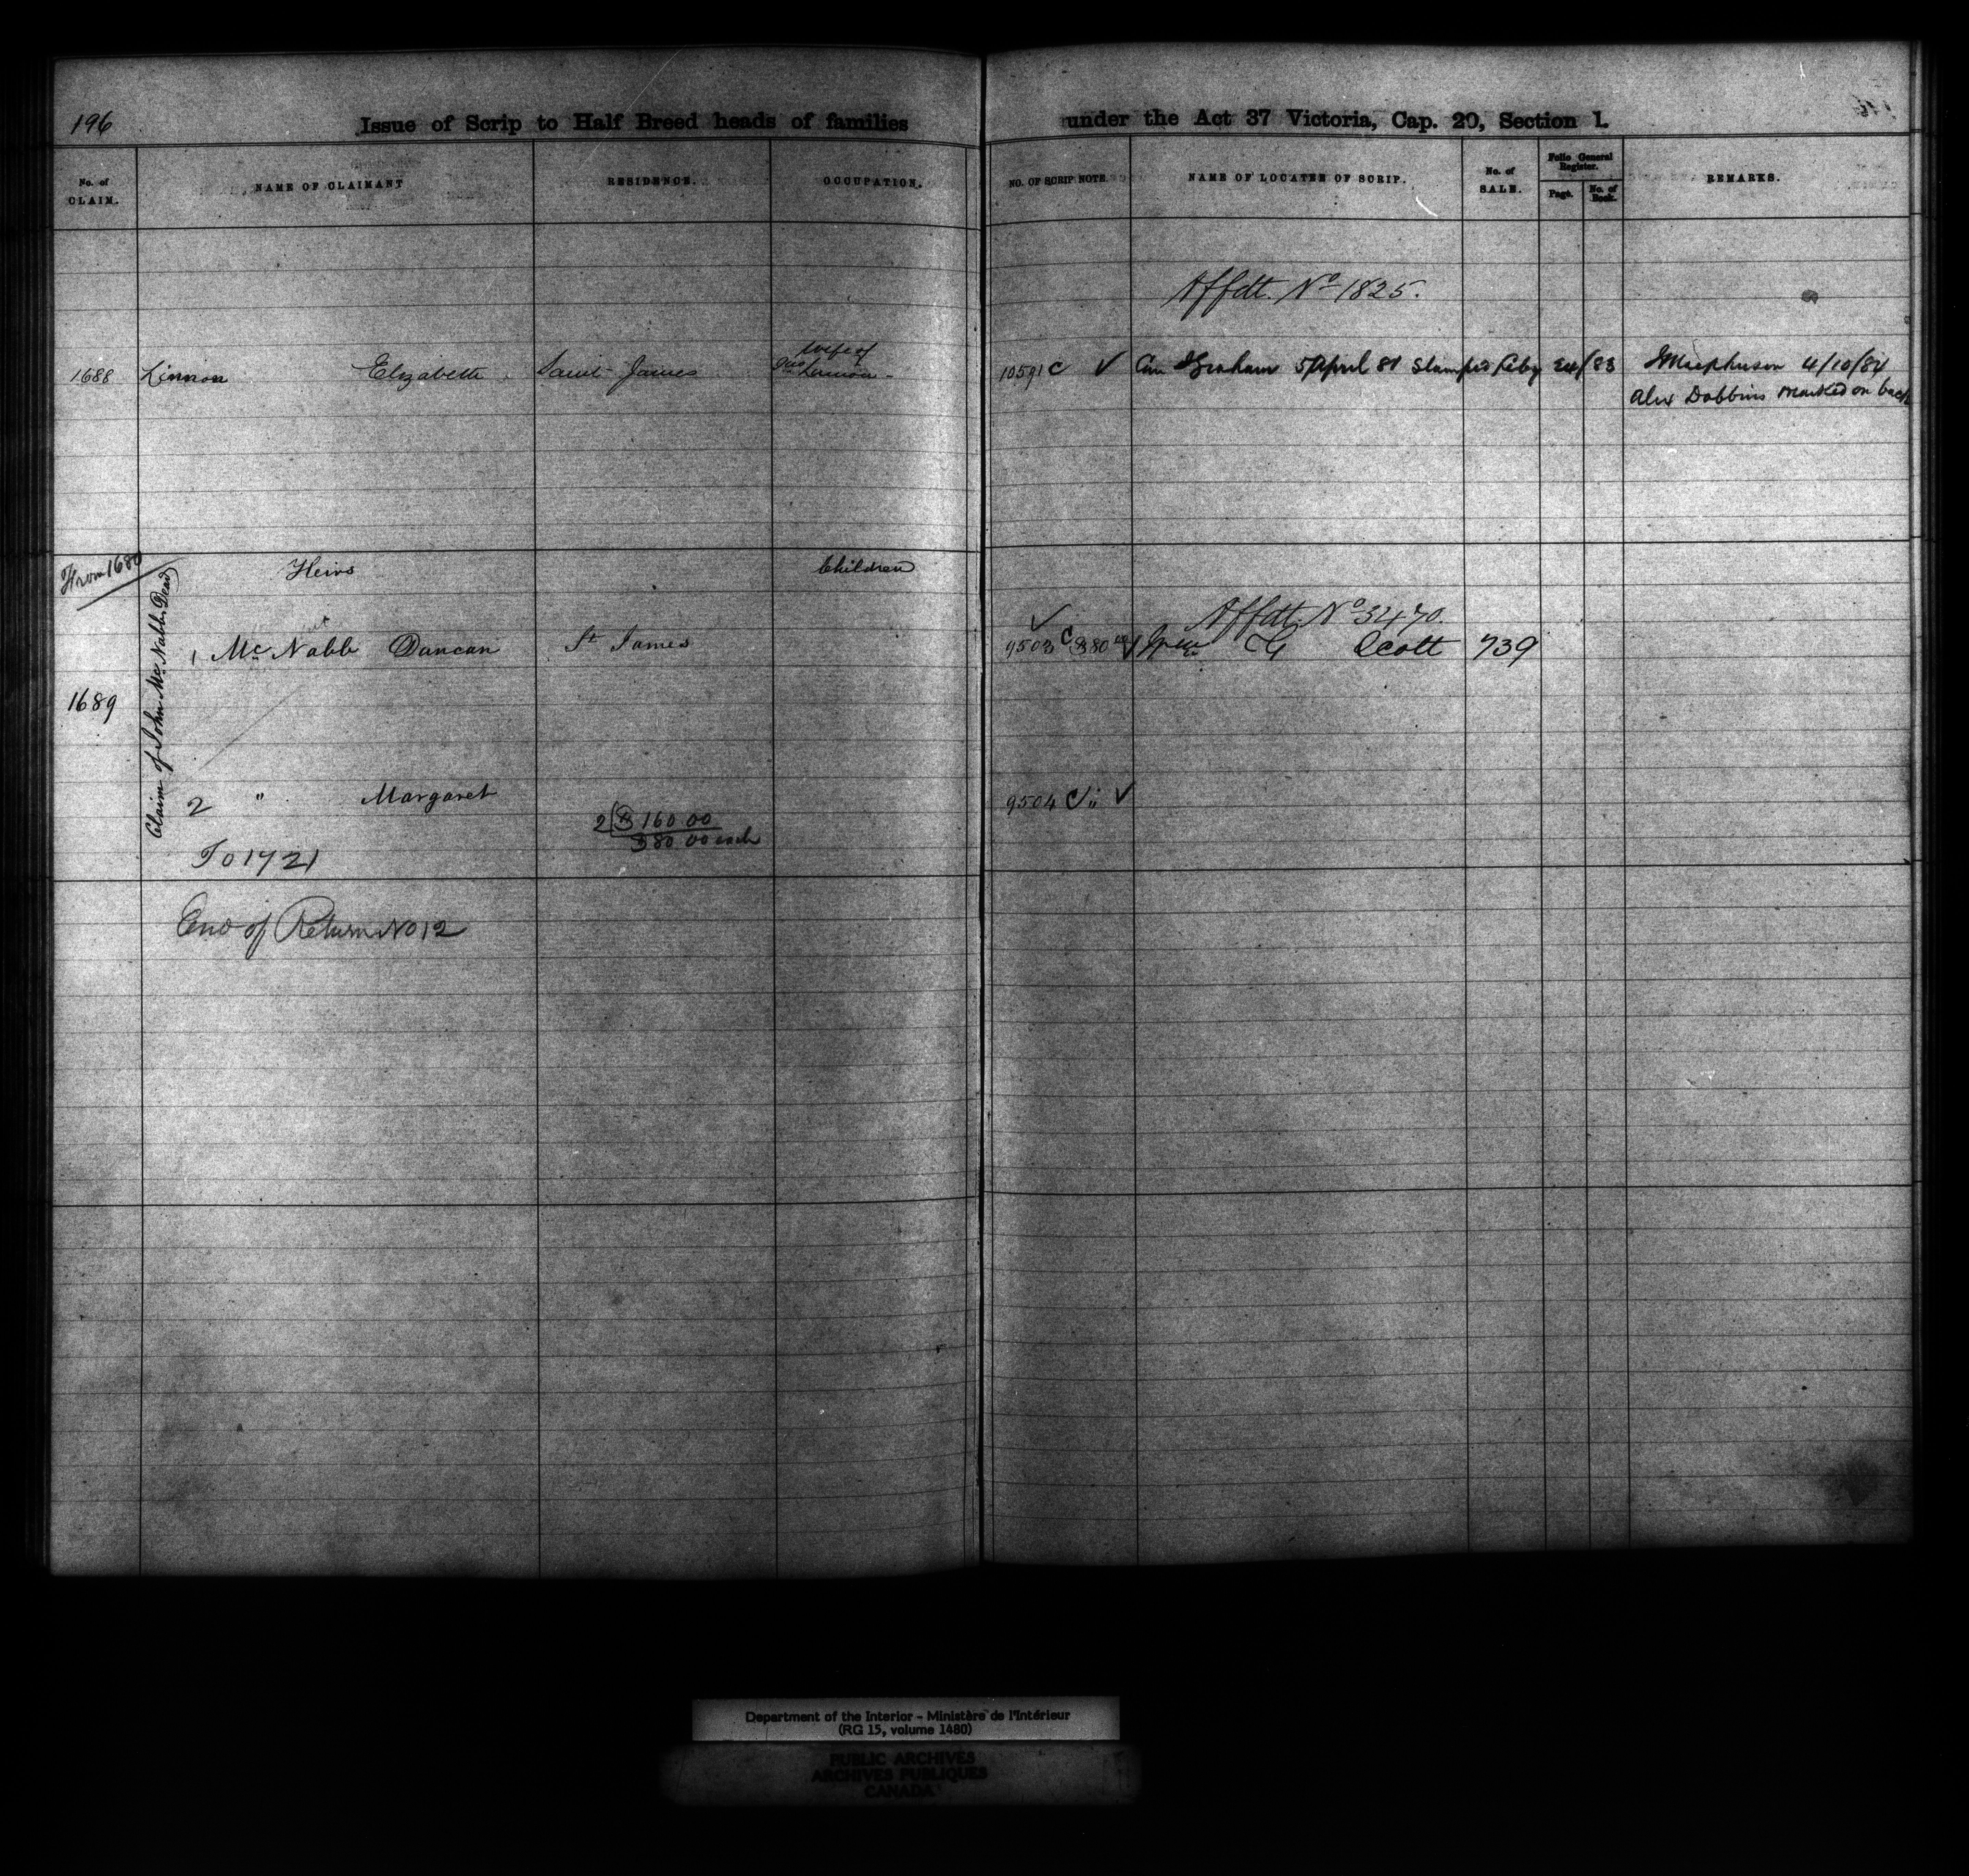 196
Issue of Scrip to Half Breed heads of families under the Act 37 Victoria, Cap. 20, Section 1.
No. of CLAIM.
NAME OF CLAIMANT
RESIDENCE.
OCCUPATION.
NO. OF SCRIP NOTE.
NAME OF LOCATEE OF SCRIP.
No. of SALE.
Folio General Register.
Page.
No. of Book.
REMARKS.
Affdt. No 1825.
wife of
1688 Linnon Elizabeth Saint James Linnon 10591 C ✓ Graham 5 April 81 Stamped Feby 24/83 Macpherson 4/10/84
Alex Dobbins marked on back
From 1680
Heirs Children
Claim of John McNabb Dead
✓ Affdt. No 3470.
1 McNabb Duncan St James 9503 C $80 00 CG Scott 739
1689
2 " Margaret 9504 C " ✓
2 $160 00
$80 00 each
To 1721
End of Return No 12
Department of the Interior - Ministère de l'Intérieur
(RG 15, volume 1480)
PUBLIC ARCHIVES
ARCHIVES PUBLIQUES
CANADA